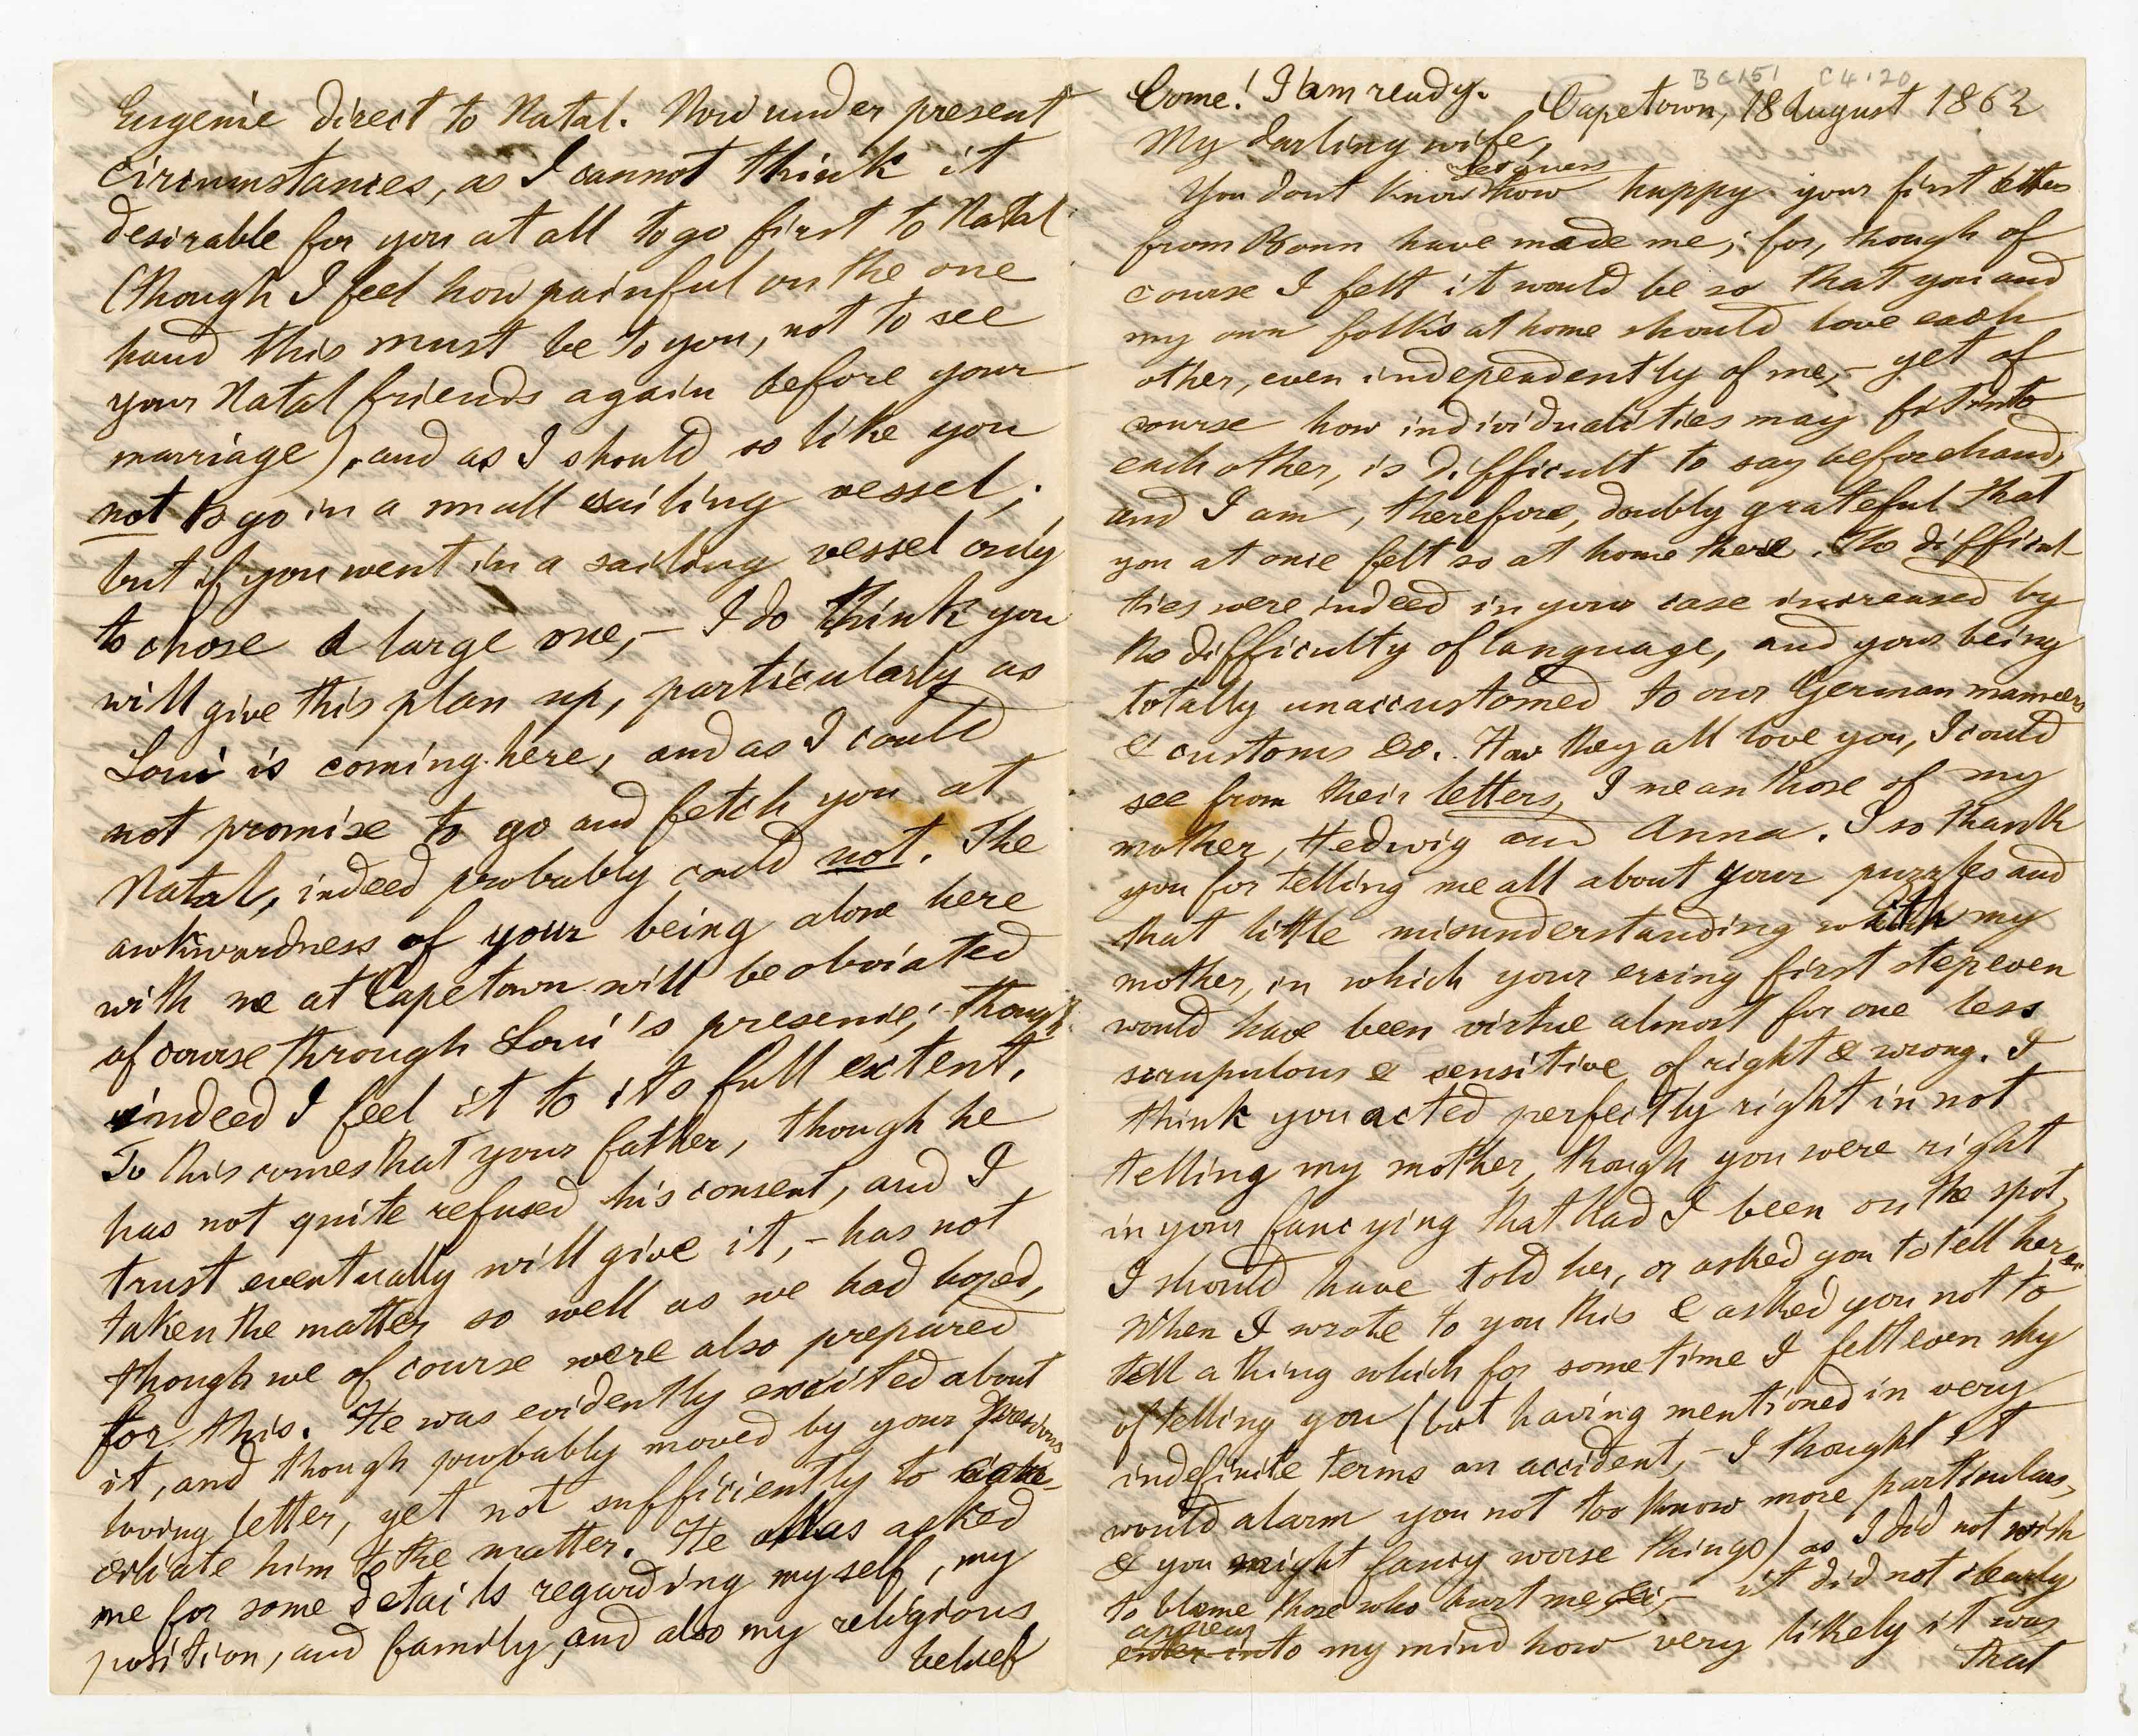 BC151 C4.20
Come! I am ready.
Capetown, 18 August 1862
My darling wife,
You dont know how happy your first letters
from Bonn have made me; for, though of
course I felt it would be so that you and
my own folks at home should love each
other, even independently of me,- yet of
course how individualities may fit into
each other, is difficult to say beforehand,
and I am, therefore, doubly grateful that
you at once felt so at home there. The difficul-
ties were indeed in your case increased by
the difficulty of language, and your being
totally unaccustomed to our German manners
& customs &c. How they all love you, I could
see from their letters, I mean those of my
mother, Hedwig and Anna. I so thank
you for telling me all about your puzzles and
that little misunderstanding with my
mother, in which your erring first step even
would have been virtue almost for one less
scrupulous & sensitive of right & wrong. I
think you acted perfectly right in not
telling my mother, though you were right
in your fancying that had I been on the spot,
I should have told her, or asked you to tell her.
When I wrote to you this & asked you not to
tell a thing which for some time I felt even shy
of telling you (but having mentioned in very
indefinite terms an accident,- I thought it
would alarm you not too know more particulars,
& you might fancy worse things) as I did not wish
to blame those who hurt me,- it did not clearly
appear
enter into my mind how very likely it was
that
Eugenie direct to Natal. Now under present
circumstances, as I cannot think it
desirable for you at all to go first to Natal
(though I feel how painful on the one
hand this must be to you, not to see
your Natal friends again before your
marriage), and as I should so like you
not to go in a small sailing vessel;
but if you went in a sailing vessel only
to chose a large one,- I do think you
will give this plan up, particularly as
Loui is coming here, and as I could
not promise to go and fetch you at
Natal, indeed probably could not. The
awkwardness of your being alone here
with me at Capetown will be obviated
of course through Loui's presence; though
indeed I feel it to its full extent.
To this comes that your father, though he
has not quite refused his consent, and I
trust eventually will give it,- has not
taken the matter so well as we had hoped,
though we of course were also prepared
for this. He was evidently excited about
it, and though probably moved by your precious
loving letter, yet not sufficiently to
ciliate him to the matter. He has asked
me for some details regarding myself, my
position, and family, and also my religious
belief